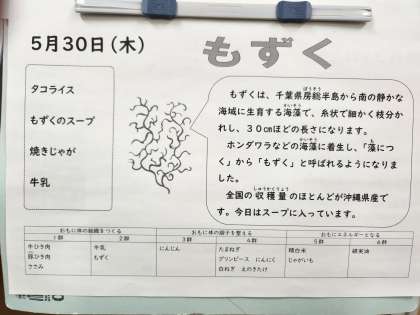 5月30日(木)
もずく
タコライス
もずくのスープ
焼きじゃが
牛乳
もずくは、千葉県房総半島から南の静かな
海域に生育する海藻で、糸状で細かく枝分か
れし、30㎝ほどの長さになります。
ホンダワラなどの海藻に着生し、「藻につ
く」から「もずく」と呼ばれるようになりまし
た。
全国の収穫量のほとんどが沖縄県産で
す。今日はスープに入っています。
おもに体の組織をつくる おもに体の調子を整える おもにエネルギーとなる
1群 2群 3群 4群 5群 6群
牛ひき肉 牛乳 にんじん たまねぎ 精白米 綿実油
豚ひき肉 もずく グリンピース にんにく じゃがいも
ささみ 白ねぎ えのきたけ